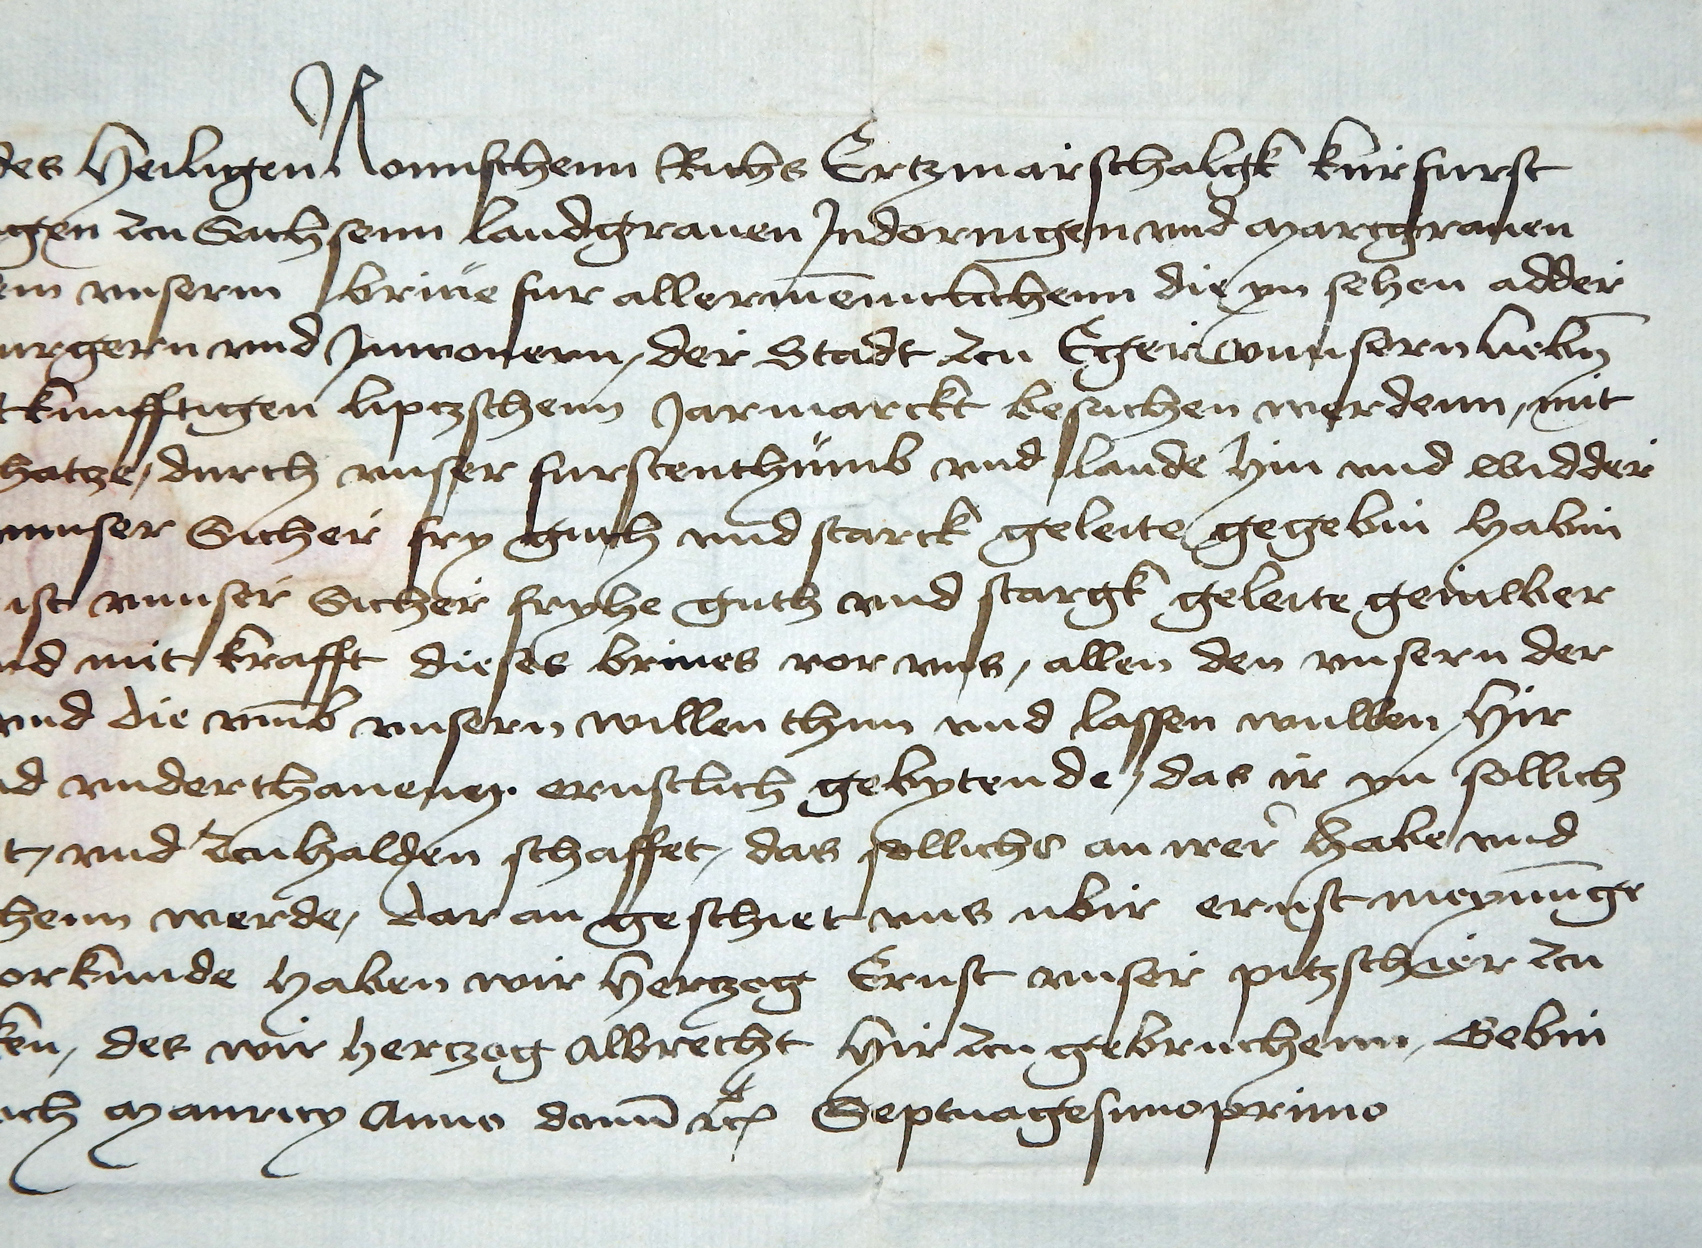 des Heiligen Romischenn Richs Ertzmarschalgk kurfurst
gen zcu Sachsenn landgrauen Indoringen vnd Marcgrauen
em vnserm briue fur allermeniclichenn die yn sehen adder
urgern vnd Inwonern, der Stadt zcu Eger vnnsern liebn
tkunfftigen lipczschenn Jarmarckt besuchen werdenn, mit
hatze, durch vnser furstenthumb vnd lande hin vnd widder
vnnser Sicher fry guth vnd starck geleite gegebin habin
ist vnnser Sicher fryhe guth vnd stargk geleite geinwer
nd mit krafft dieses briues vor vns, allen den vnsern der
vnd die vmb vnsern willen thun vnd lassen wullen Hir
nd vnderthanen ernstlich gebytende, das ir yn sollich
t, vnd zcuhalden schaffet, das sollichs an wer habe vnd
henn werde, dar an geschiet vns ubir ernst meynunge
orkunde haben wir Hertzog Ernst vnser pitzschier zcu
ken, des wir hertzog Albrecht hir zcu gebruchenn, Gebin
ch Mauricy Anno domi Septuagesimoprimo